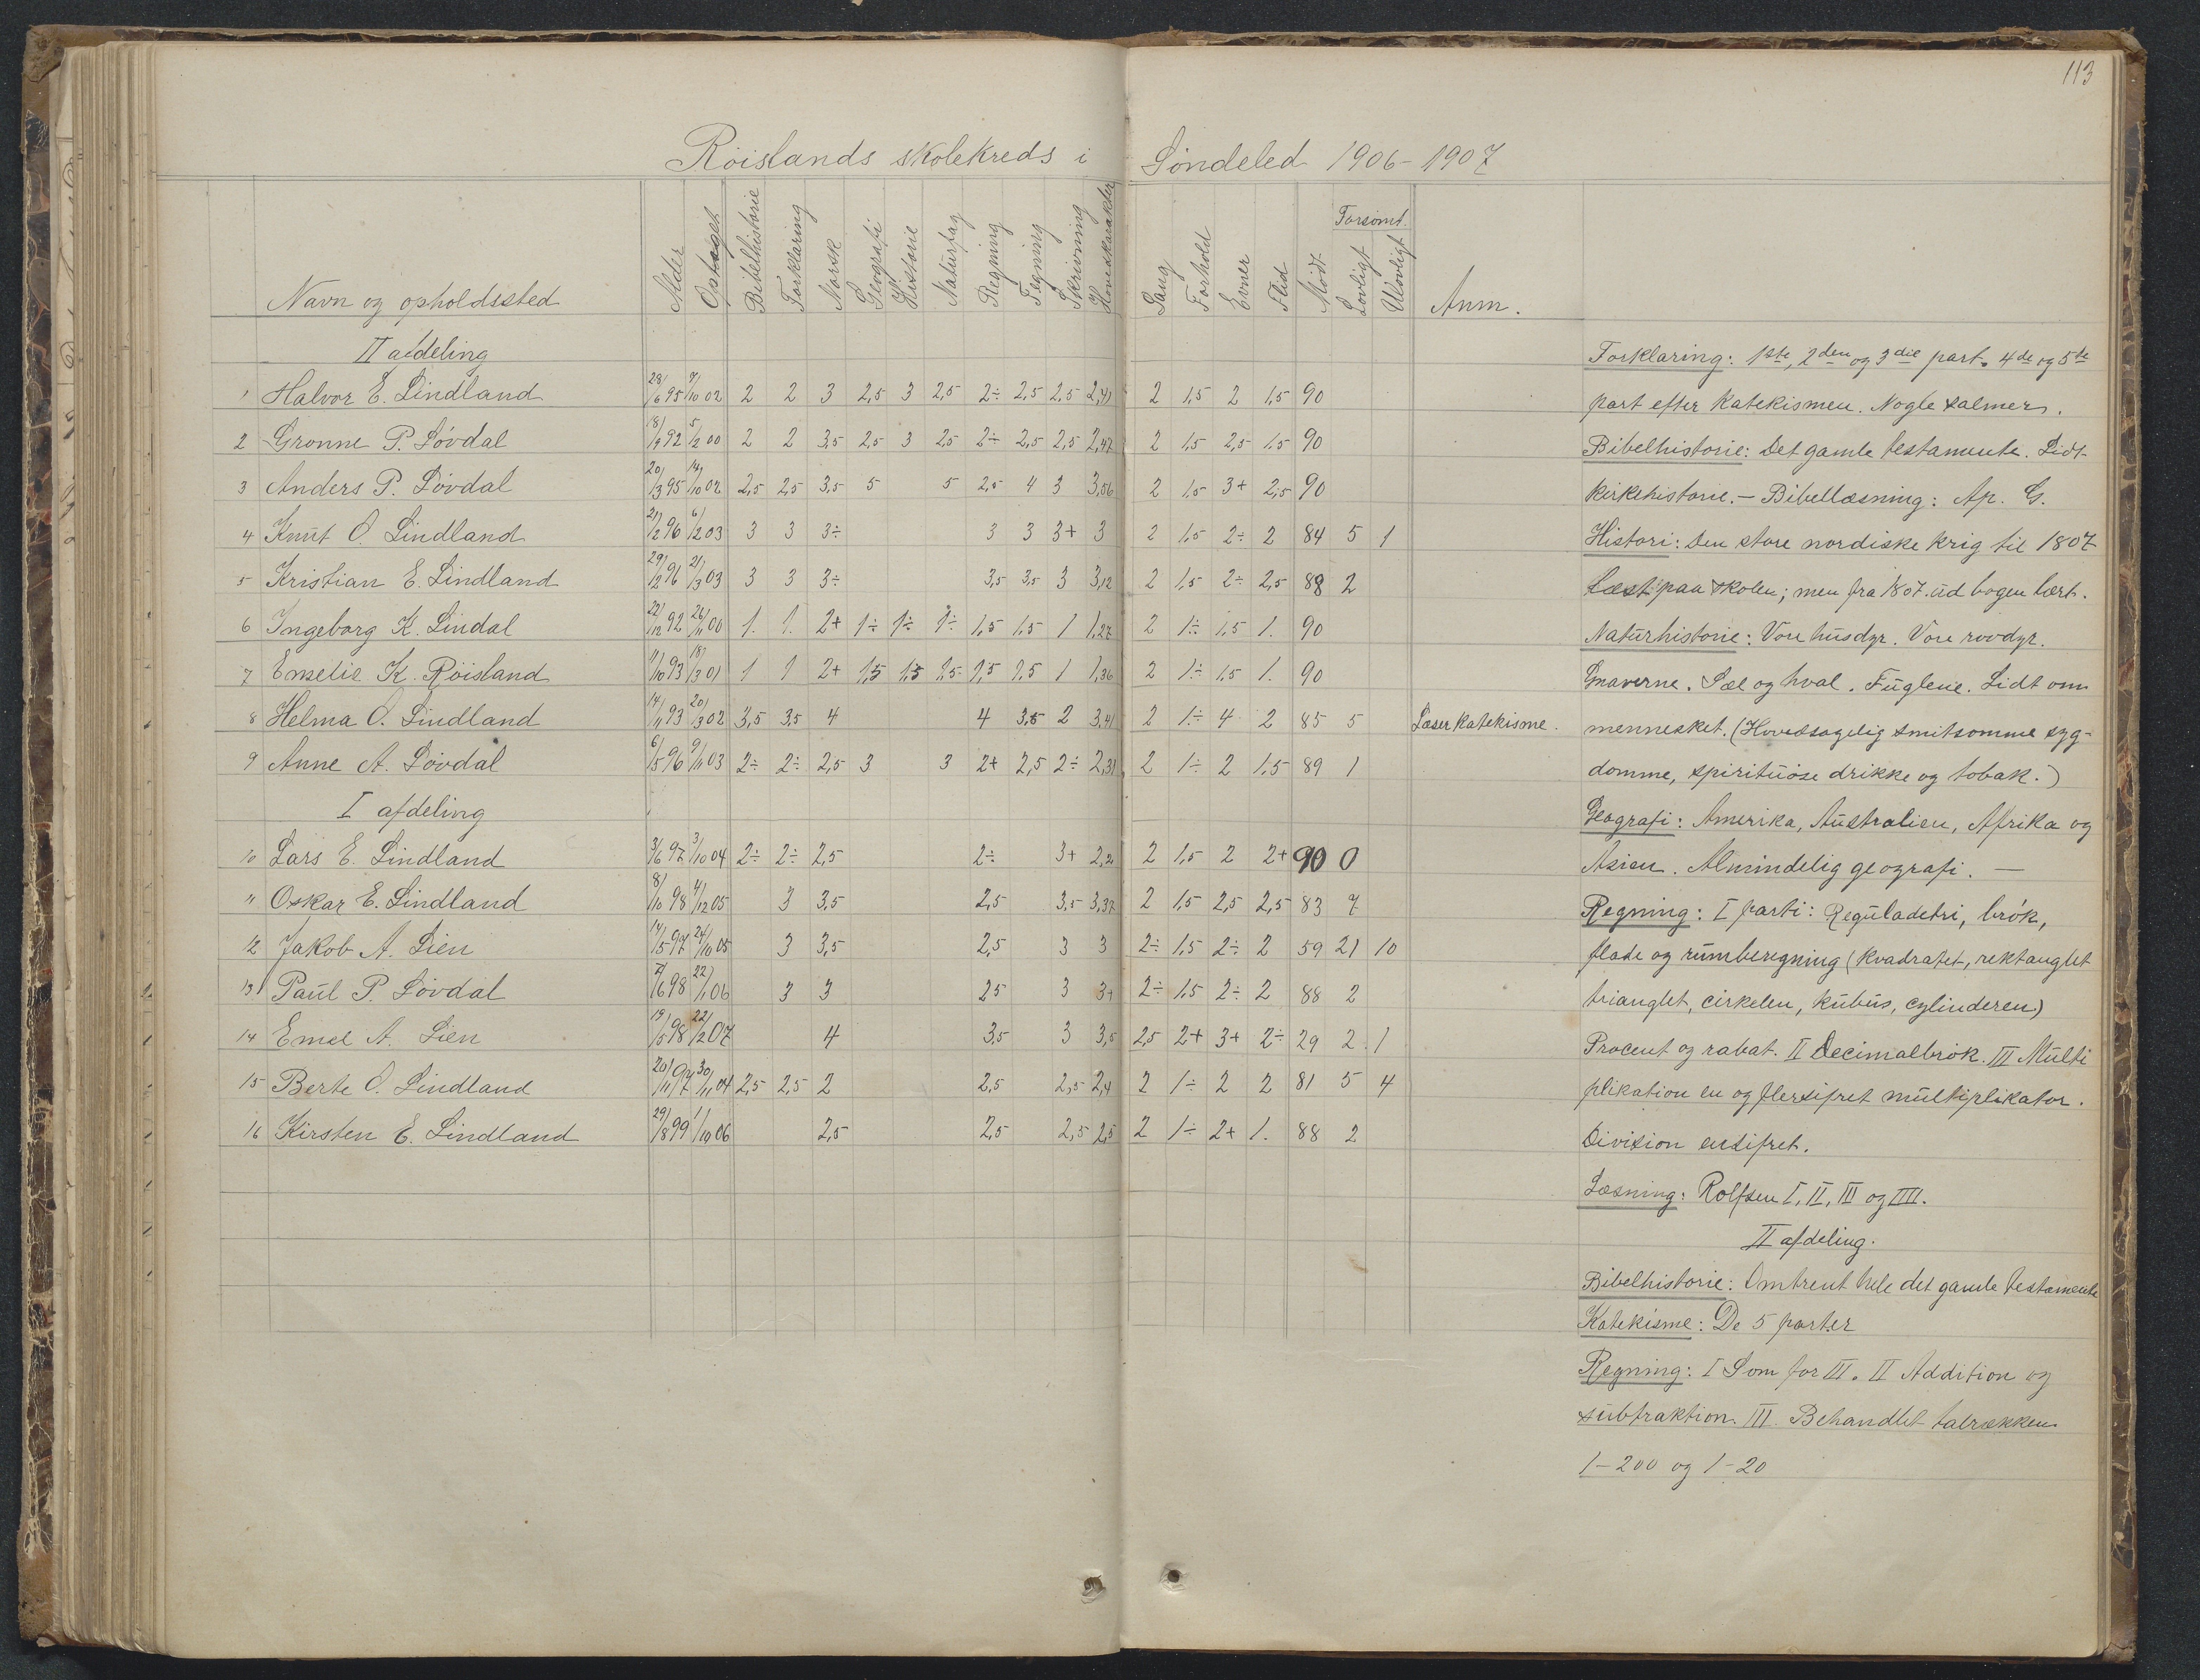 113
Röislands skolekreds i Söndeled 1906-1907
Navn og opholdssted Alder Optaget Bibelhistorie Forklaring Norsk Geografi Historie Naturfag Regning Tegning Skrivning Hovedkarakter Sang Forhold Evner Flid Mödt Forsömt. Lovligt Ulovligt Anm.
II afdeling
1 Halvor E. Lindland 28/6 95 7/10 02 2 2 3 2,5 3 2,5 2÷ 2,5 2,5 2,41 2 1,5 2 1,5 90
2 Gronne P. Lövdal 18/9 92 5/2 00 2 2 3,5 2,5 3 2,5 2÷ 2,5 2,5 2,47 2 1,5 2,5 1,5 90
3 Anders P. Lövdal 20/3 95 14/10 02 2,5 2,5 3,5 5 5 2,5 4 3 3,06 2 1,5 3+ 2,5 90
4 Knut O. Lindland 21/2 96 6/2 03 3 3 3÷ 3 3 3+ 3 2 1,5 2÷ 2 84 5 1
5 Kristian E. Lindland 29/2 96 21/3 03 3 3 3÷ 3,5 3,5 3 3,12 2 1,5 2÷ 2,5 88 2
6 Ingeborg K. Lindal 22/12 92 26/11 00 1. 1. 2+ 1÷ 1÷ 1÷ 1,5 1,5 1 1,27 2 1÷ 1,5 1. 90
7 Emelie K. Röisland 11/10 93 18/3 01 1 1 2+ 1,5 1,5 1,5 1,5 1,5 1 1,36 2 1÷ 1,5 1. 90
8 Helma O. Lindland 14/11 93 20/3 02 3,5 3,5 4 4 3,5 2 3,41 2 1÷ 4 2 85 5 Læser Katekisme.
9 Anne A. Lövdal 6/5 96 9/11 03 2÷ 2÷ 2,5 3 3 2+ 2,5 2÷ 2,31 2 1÷ 2 1,5 89 1
I afdeling
10 Lars E. Lindland 3/6 97 3/10 04 2÷ 2÷ 2,5 2÷ 3+ 2,2 2 1,5 2 2+ 90 0
11 Oskar E. Lindland 8/10 98 4/12 05 3 3,5 2,5 3,5 3,37 2 1,5 2,5 2,5 83 7
12 Jakob A. Lien 17/5 97 24/10 05 3 3,5 2,5 3 3 2÷ 1,5 2÷ 2 59 21 10
13 Paul P. Lövdal 7/6 98 22/1 06 3 3 2,5 3 3+ 2÷ 1,5 2÷ 2 88 2
14 Emel A. Lien 19/5 98 22/2 07 4 3,5 3 3,5 2,5 2+ 3+ 2÷ 29 2 1
15 Berte O. Lindland 20/11 97 30/11 04 2,5 2,5 2 2,5 2,5 2,4 2 1÷ 2 2 81 5 4
16 Kirsten E. Lindland 29/8 99 1/10 06 2,5 2,5 2,5 2,5 2 1÷ 2+ 1. 88 2
Forklaring: 1ste, 2den og 3die part. 4de og 5te
part efter Katekismen. Nogle salmer.
Bibelhistorie: Det gamle testamente. Lidt
kirkehistorie. - Bibellæsning: Ap. G.
Histori: Den store nordiske krig til 1807
læst paa skolen; men fra 1807 ud bogen lært.
Naturhistorie: Vore husdyr. Vore rovdyr.
Gnaverne. Sæl og hval. Fuglene. Lidt om
mennesket. (Hovedsagelig smitsomme syg-
domme, spirituöse drikke og tobak.)
Geografi: Amerika, Australien, Afrika og
Asien. Almindelig geografi. -
Regning: I parti: Reguladetri, brök,
flade og rumberegning (kvadratet, rektanglet
trianglet, cirkelen, kubus, cylinderen)
Procent og rabat. II Decimalbrök. III Multi
plikation en og flersifret multiplikator.
Division ensifret.
Læsning: Rolfsen I, II, III og IIII.
II afdeling.
Bibelhistorie: Omtrent hele det gamle testamente
Katekisme: De 5 parter
Regning: I Som for III. II Addition og
subtraktion. III Behandlet talrækken
1-200 og 1-20